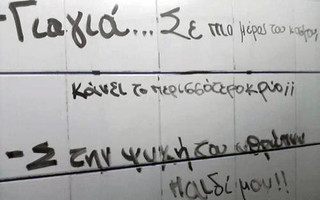 -Γιαγιά... Σε πιο μέρος του κόσμου
κάνει το περισσότερο κρύο;;
-Σ την ψυχή του
παιδί μου!!